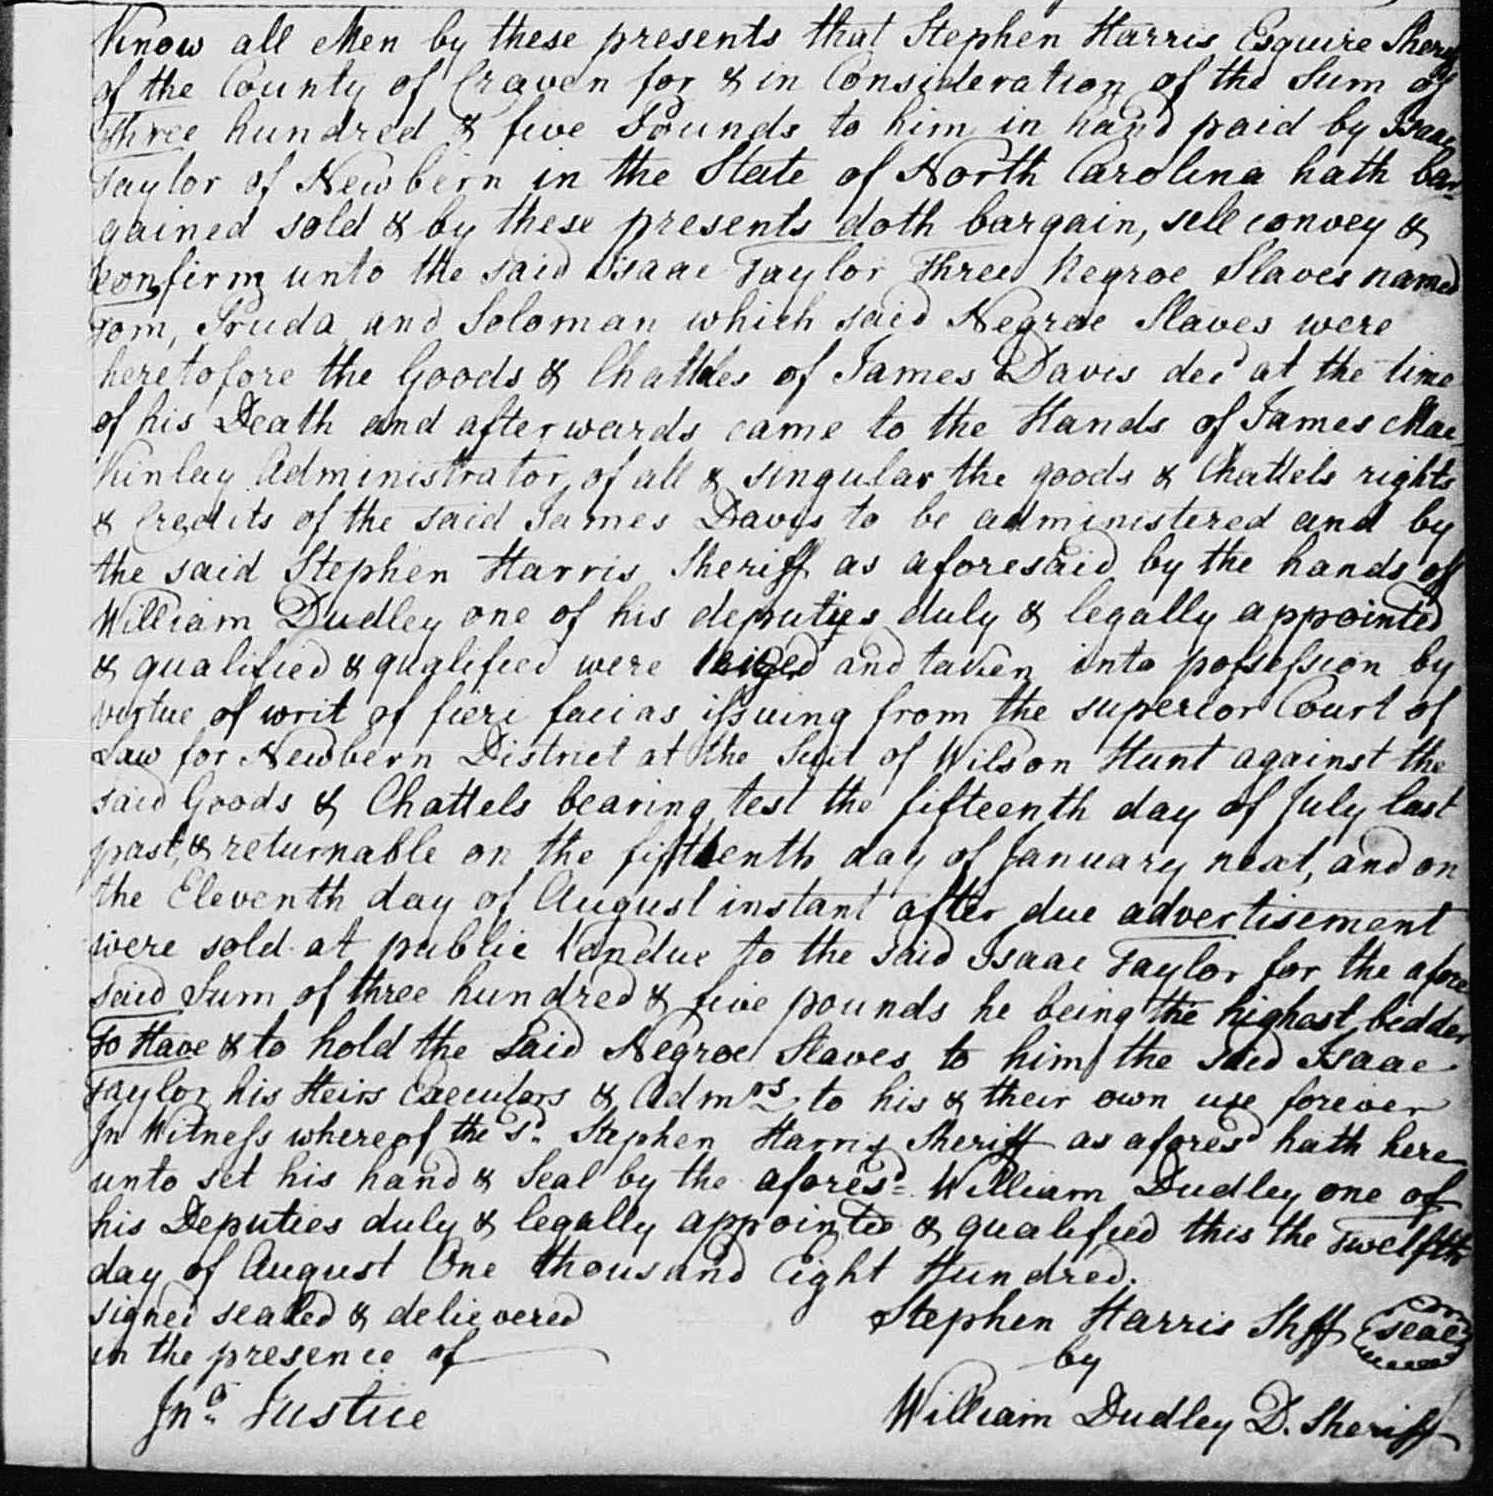 Know all Men by these presents that Stephen Harris Esquire Sheriff
of the County of Craven for & in Consideration of the Sum of
Three hundred & five Pounds to him in hand paid by Isaac
Taylor of Newbern in the State of North Carolina hath bar-
gained sold & by these presents doth bargain, sell convey &
confirm unto the said Isaac Taylor Three Negroe Slaves named
Tom, Pruda and Soloman which said Negroe Slaves were
heretofore the Goods & Chattles of James Davis decd at the time
of his Death and afterwards came to the Hands of James Mac-
Kinlay Administrator, of all & singular the goods & Chattels rights
& Credits of the said James Davis to be administered and by
the said Stephen Harris Sheriff as aforesaid by the hands of
William Dudley one of his deputies duly & legally appointed
& qualified & qualified were seized and taken into possession by
virtue of writ of fieri facias issuing from the superior Court of
Law for Newbern District at the Suit of Wilson Hunt against the
said Goods & Chattels bearing test the fifteenth day of July last
past, & returnable on the fifteenth day of January next, and on
the Eleventh day of August instant after due advertisement
were sold at public Vendue to the said Isaac Taylor for the afore
said Sum of three hundred & five pounds he being the highest bedder
To Have & to hold the said Negroe Slaves to him the said Isaac
Taylor his Heirs Executors & Admrs to his & their own use forever
In Witness whereof the sd. Stephen Harris Sheriff as aforesd hath here
unto set his hand & Seal by the aforesd. William Dudley one of
his Deputies duly & legally appointed & qualified this the Twelfth
day of August One thousand Eight Hundred.
signed sealed & delievered
in the presence of
Jno. Justice
Stephen Harris Shff seal
by
William Dudley D. Sheriff